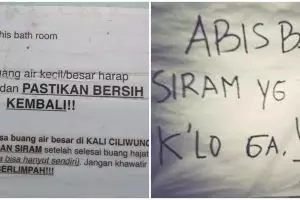 his bath room
uang air kecil/besar harap
dan PASTIKAN BERSIH
KEMBALI!!
sa buang air besar di KALI CILIWUNG
AN SIRAM setelah selesai buang hajat
a bisa hanyut sendiri). Jangan khawatir
BERLIMPAH!!!
ABIS B
SIRAM YG
K'LO GA.!